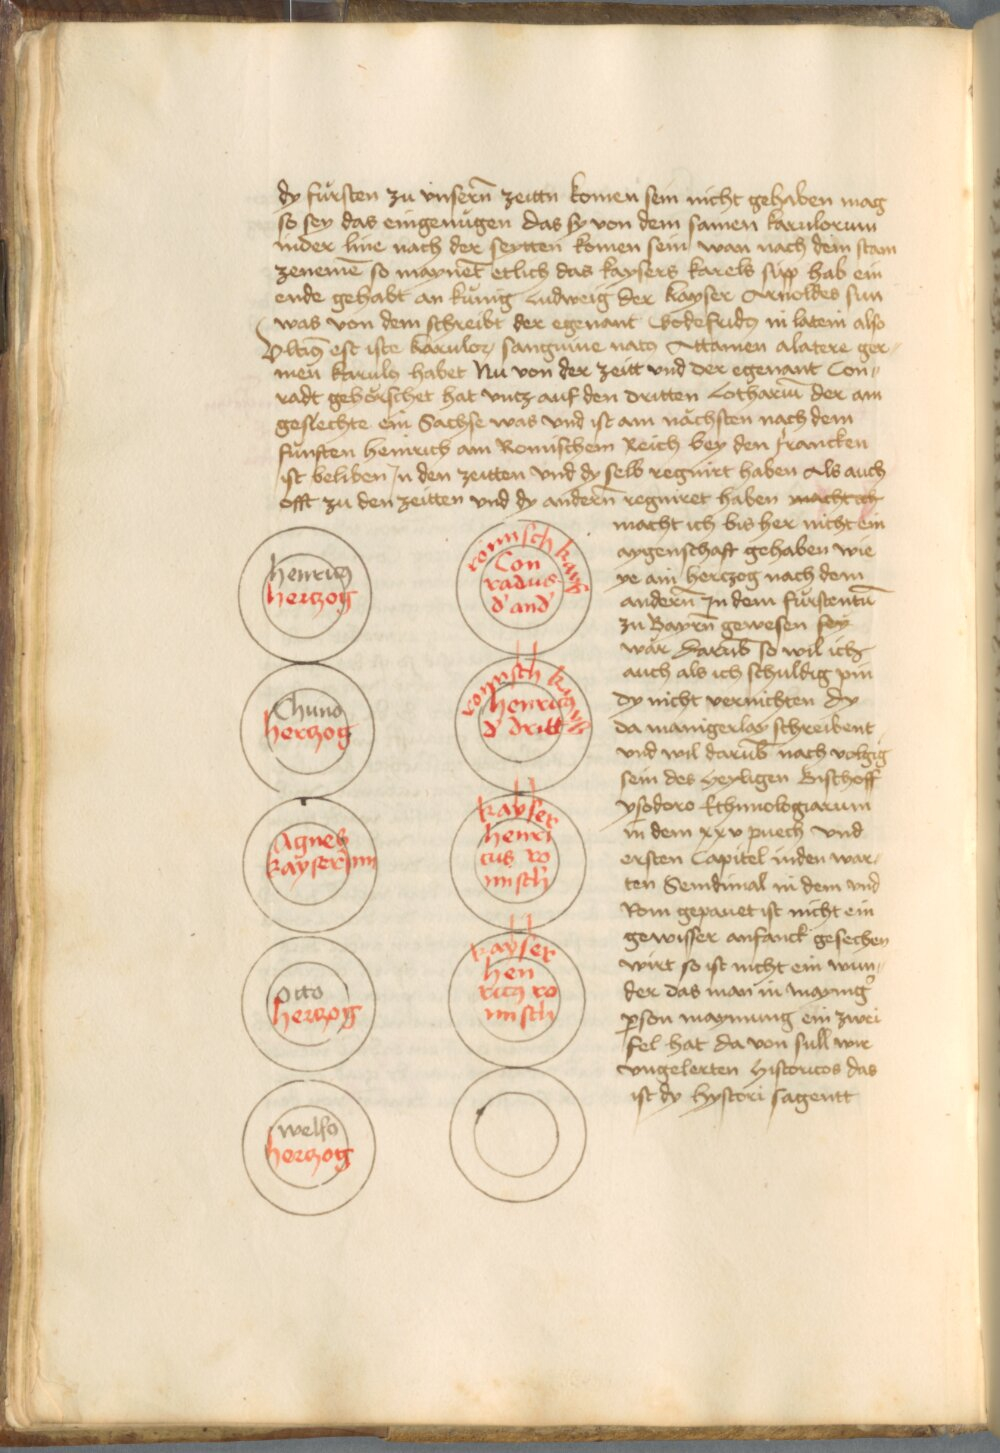 dy fürsten zu vnsern̄ zeittn komen sein nicht gehaben mag
so sey das eingenügen das sy von dem samen karulorum
inder line nach der seytten komen sein wan nach dem stam
zenemē so maynēt etlich das kaysers karels sipp hab ein
ende gehabt an künig Ludweig der kayser Arnoldes sun
was von dem schreibt der egenant Godefridus in latein also
Vltimus est iste karulor sanguine natus Attamen alatere ger-
men karulus habet Nu von der zeitt vnd der egenant Con-
radt gehörschet hat vntz auf den dritten Lothariū der am
geslechte ein Sachse was vnd ist am nächsten nach dem
fünften heinrich am Romischem Reich bey den francken
ist beliben In den zeitten vnd dy selb regnirt haben Als auch
offt zu den zeitten vnd dy andern̄ regniret haben macht ich
macht ich bis her nicht ein
aygenschaft gehaben wie
ye ain hertzog nach dem
andern̄ In dem fürstentū
zu Bayrn̄ gewesen sey
wär Darūb so wil ich
auch als ich schuldig pin
dy nicht vernichten dy
da manigerlay schreibent
vnd wil darūb nach volgig
sein des heyligen Bischoff
ysodoro Ethimologiarum
in dem xxv puech vnd
ersten Capitel inden war-
ten Seindimal in dem vnd
Rom gepauet ist nicht ein
gewisser anfanck gesechen
wirt so ist nicht ein wun-
der das man in maynig
person maynung ein zwei
fel hat da von sull wir
vngelerten historicos das
ist dy hystori sagentt
henricus
hertzog
Chuno
hertzog
Agnes
kayserinn
otto
hertzog
welfo
hertzog
romisch kayser
Con
radus
d' and'
romisch kayser
henricus
d' dritt
kayser
henri
cus ro
misch
kayser
hen
ricus ro
misch